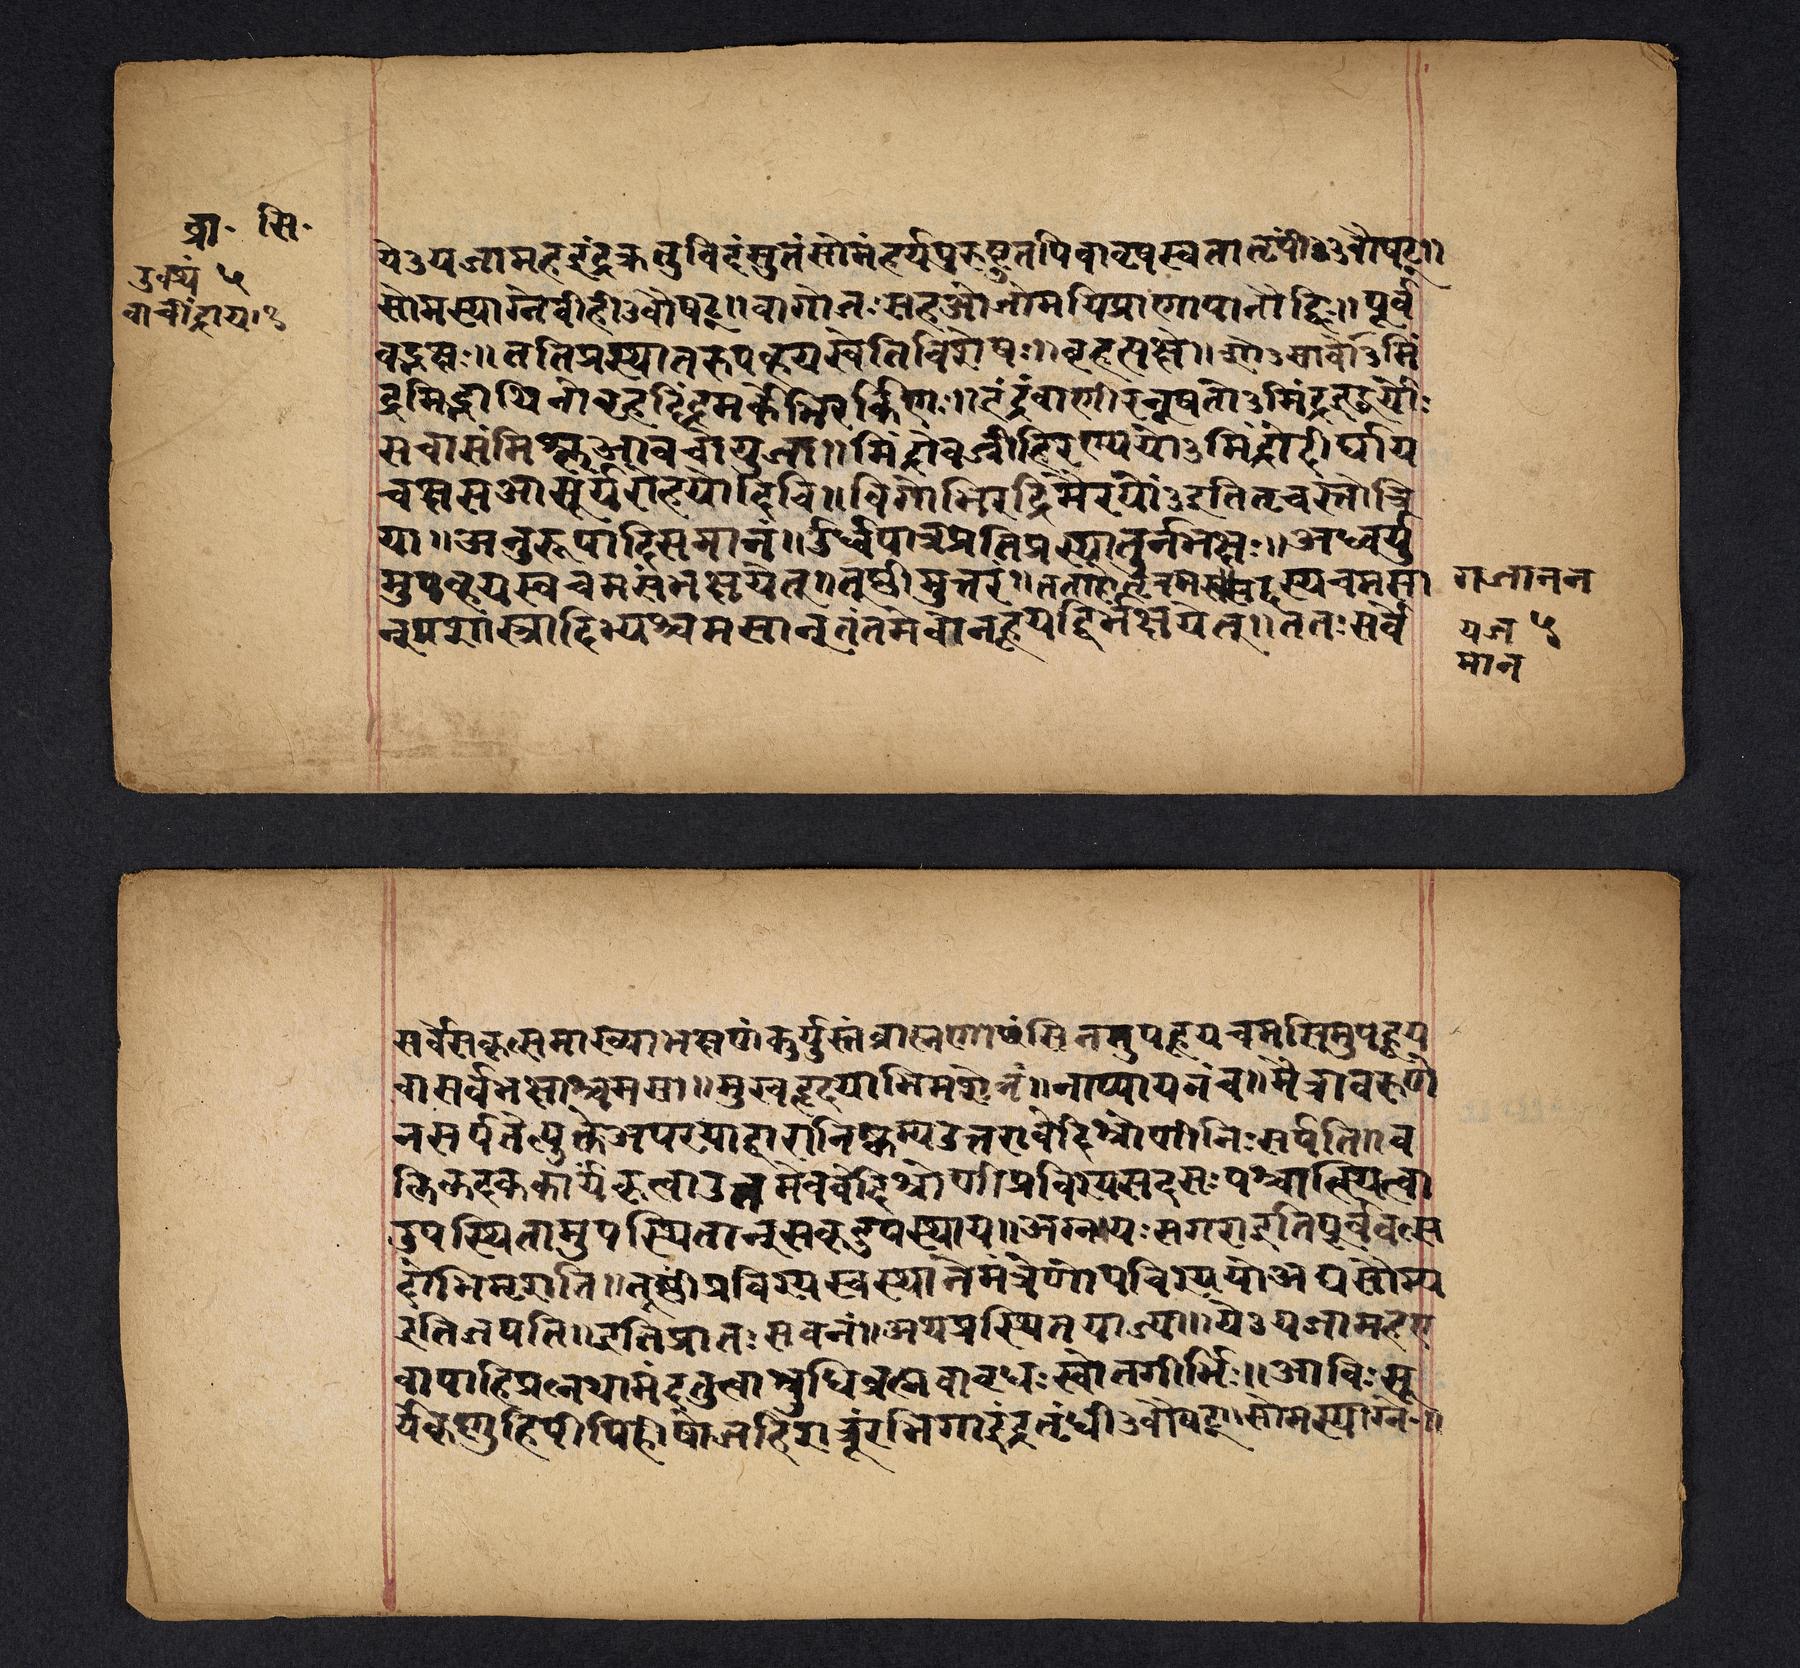 ब्रा॰ सि॰
उक्थ्यं ५
वाचींद्राय॥१
ये३यजामहइंद्रक्रतुविदंसुतंसोमंहर्यपुरुष्टुतपिबावृषस्वतातृपीं३वौषट्॥
सोमस्याग्नेवीही३वौषट्॥वागोजःसहओजोमयिप्राणापानौद्विः॥पूर्व
वद्भक्षः॥ततिप्रस्थातरुपह्वयस्वेतिविशेषः॥बृहत्पक्षे॥शो३सावो३मिं
द्रमिद्गाथिनोबृहदिंद्रमर्केभिरर्किणः॥तंद्रंवाणीरनूषतो३मिंद्रइद्धर्योः
सचासंमिश्लआवचोयुजा॥मिंद्रोवज्रीहिरण्ययो३मिंद्रोदीर्घाय
चक्षसआसूर्यंरोहयोद्दिवि॥विगोभिरद्रिमैरयों३इतितृचस्तोत्रि
या॥अनुरूपादिसमानं॥ऊर्ध्वपात्रंप्रतिप्रस्थातुर्नभक्षः॥अध्वर्यु
मुपह्वयस्वचमसंभक्षयेत्॥तूष्णीमुत्तरं॥ स्यचमसा
नुपशास्त्रादिभ्यश्चमसानूतंतमेवानुहूयद्विर्भक्षयेत्॥ततःसर्वे
गजानन
यज ५
मान
सर्वेसकृत्समाख्याभक्षणंकुर्युस्तंब्राह्मणाछंसिनमुपहूयचमसिमुपहूय
वासर्वभक्षाश्चमसा॥मुखहृदयाभिमर्शनं॥नाप्यायनंच॥मैत्रावरुणे
नसर्पतेत्युक्तेअपरयाद्वारानिष्क्रम्यउत्तरावेदिश्रोणीनिःसर्पति॥व
क्तिकदककार्यंकृत्वाउत्तमेववेदिश्रोणीप्रविश्यसदसःपश्चात्स्थित्वा
उपस्थितामुपस्थितानूसकृदुपस्थाय॥अग्नयःसगराइतिपूर्ववत्स
दोभिमृशति॥तूष्णींप्रविश्यस्वस्थानेमंत्रेणोपविश्ययोअद्यसौम्य
इतिजपति॥इतिप्रातःसवनं॥अथप्रस्थितयाज्या॥ये३यजामहए
वापाहिप्रत्नथामंदतुत्वाश्रुधिब्रह्मवावृधःस्वोतगीर्भिः॥आविःसू
र्यंकृणुहिपीपिहीषोजहिशत्रूंरभिगाइंद्रतृंधी३वौषट्॥सोमस्याग्ने॰॥